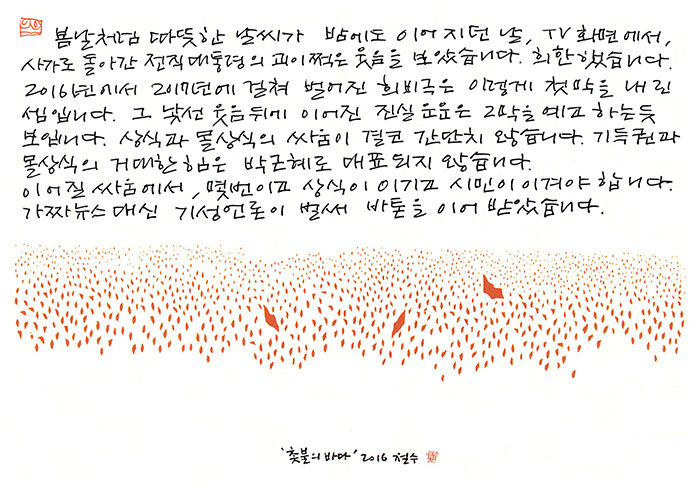 봄날처럼 따뜻한 날씨가 밤에도 이어지던 날, TV 화면에서,
사가로 돌아간 전직대통령의 괴이쩍은 웃음을 보았습니다. 희한했습니다.
2016년에서 2017년에 걸쳐 벌어진 희비극은 이렇게 첫막을 내린
셈입니다. 그 낯선 웃음뒤에 이어진 진실 운운은 2막을 예고 하는듯
보입니다. 상식과 몰상식의 싸움이 결코 간단치 않습니다. 기득권과
몰상식의 거대한 힘은 박근혜로 대표되지 않습니다.
이어질 싸움에서, 몇번이고 상식이 이기고 시민이 이겨야 합니다.
가짜뉴스 대신 기성언론이 벌써 바톤을 이어 받았습니다.
'촛불의 바다' 2016 철수